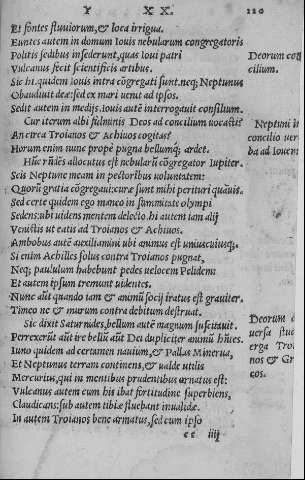 Y X X. 220
Et fontes fluuiorum, & loca irrigua.
Euntes autem in domum Iouis nebularum congregatoris
Politis sedibus insederunt, quas Ioui patri
Vulcanus fecit scientificis artibus.
Sic hi quidem Iouis intra cōgregati sunt. neq; Neptunus
Obaudiuit deæ: sed ex mari uenit ad ipsos.
Sedit autem in medijs. Iouis autē interrogauit consilium.
Cur iterum albi fulminis Deos ad concilium uocastis?
An circa Troianos & Achiuos cogitas?
Horum enim nunc prope pugna bellumq; ardet.
Hūc rūdēs allocutus est nebularū cōgregator Iupiter.
Scis Neptune meam in pectoribus uoluntatem:
Quorū gratia cōgregaui: curæ sunt mihi perituri quāuis.
Sed certe quidem ego manco in summitate olympi
Sedens: ubi uidens mentem delecto. hi autem iam alij
Venistis ut eatis ad Troianos & Achiuos.
Ambobus autē auxiliamini ubi animus est uniuscuiusq;
Si enim Achilles solus contra Troianos pugnat,
Neq; paululum habebunt pedes uelocem Pelidem:
Et autem ipsum tremunt uidentes.
Nunc aūt quando iam & animū socij iratus est grauiter.
Timeo ne & murum contra debitum destruat.
Sic dixit Saturnides, bellum autē magnum suscitauit.
Perrexerūt aūt ire bellū aūt Dei dupliciter animū hūces.
Iuno quidem ad certamen nauium, & Pallas Minerua,
Et Neptunus terram continens, & ualde utilis
Mercurius, qui in mentibus prudentibus ornatus est:
Vulcanus autem cum his ibat fortitudine superbiens,
Claudicans: sub autem tibiæ fluebant inualidæ.
In autem Troianos bene armatus, sed cum ipso
ee iiij
Deorum con
cilium.
Neptuni in
concilio uer
ba ad Iouem
Deorum d
uersa stu
erga Troi
nos & Gr
cos.